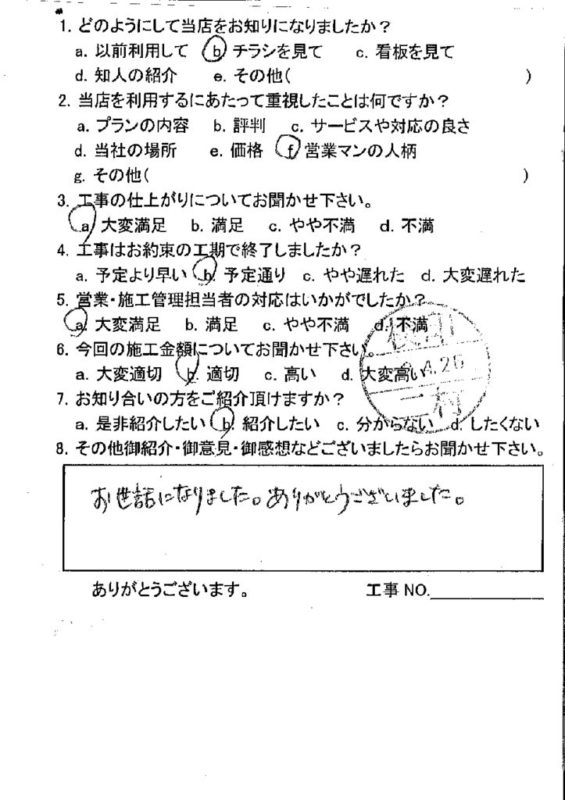 1. どのようにして当店をお知りになりましたか？
a. 以前利用して b チラシを見て c. 看板を見て
d. 知人の紹介 e. その他( )
2. 当店を利用するにあたって重視したことは何ですか？
a. プランの内容 b. 評判 c. サービスや対応の良さ
d. 当社の場所 e. 価格 f 営業マンの人柄
g. その他( )
3. 工事の仕上がりについてお聞かせ下さい。
a 大変満足 b. 満足 c. やや不満 d. 不満
4. 工事はお約束の工期で終了しましたか？
a. 予定より早い b. 予定通り c. やや遅れた d. 大変遅れた
5. 営業・施工管理担当者の対応はいかがでしたか？
a. 大変満足 b. 満足 c. やや不満 d. 不満
6. 今回の施工金額についてお聞かせ下さい。
a. 大変適切 b. 適切 c. 高い d. 大変高い
4.26
7. お知り合いの方をご紹介頂けますか？
a. 是非紹介したい b. 紹介したい c. 分からない d. したくない
8. その他御紹介・御意見・御感想などございましたらお聞かせ下さい。
お世話になりました。ありがとうございました。
ありがとうございます。 工事 NO.